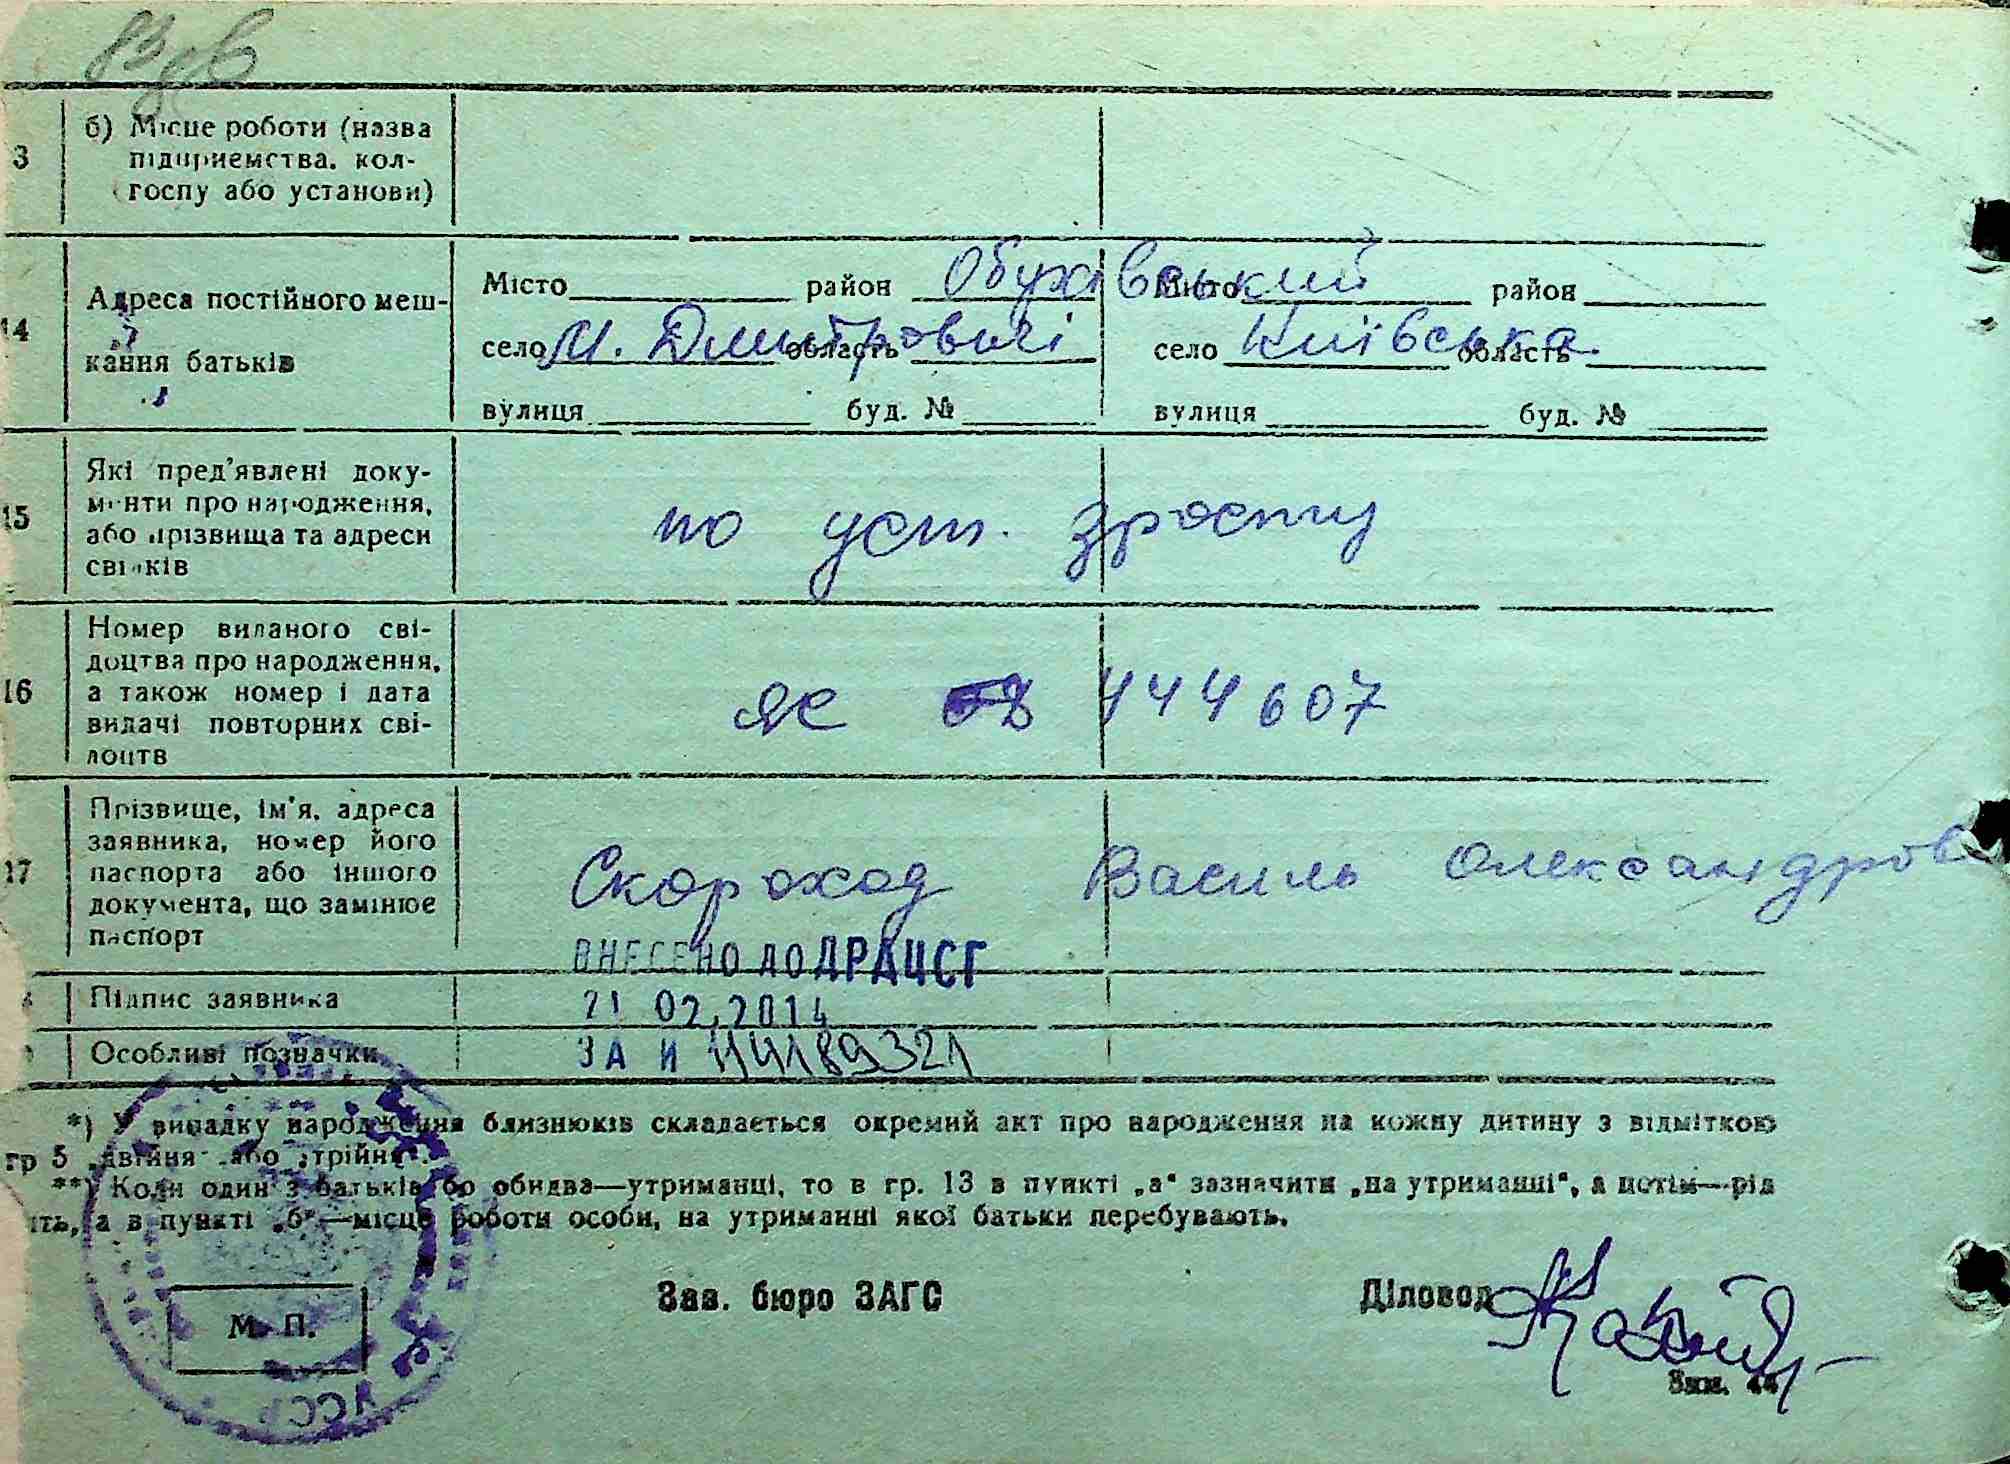 3 б) Місце роботи (назва
підприємства, кол-
госпу або установи)
14 Адреса постійного меш-
кання батьків
Місто район Обухівський Місто район
село М. Дмитровичі область село Київська область
вулиця буд. № вулиця буд. №
15 Які пред'явлені доку-
менти про народження,
або прізвища та адреси
свідків
по уст. зросту
16 Номер виданого сві-
доцтва про народження,
а також номер і дата
видачі повторних сві-
доцтв
ЯЄ 444607
17 Прізвище, ім'я, адреса
заявника, номер його
паспорта або іншого
документа, що замінює
паспорт
Скороход Василь Олександров
ВНЕСЕНО ДО ДРАЦСГ
Підпис заявника
21 02.2014
Особливі позначки
ЗА №
*) У випадку народження близнюків складається окремий акт про народження на кожну дитину з відміткою
гр 5 „двійня" або „трійня".
**) Коли один з батьків бо обидва—утриманці, то в гр. 13 в пункті „а" зазначити „на утриманні", а потім—рід
ить, а в пункті „б"—місце роботи особи, на утриманні якої батьки перебувають.
Зав. бюро ЗАГС Діловод
М. П.
Зам. 44
УССР